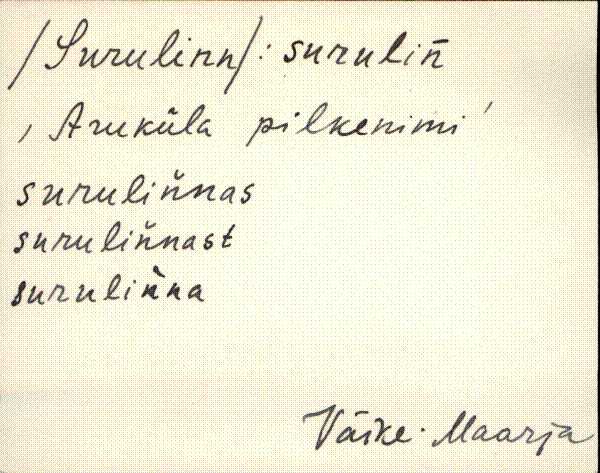 /Surulinn/: suruliñ
, Aruküla pilkenimi'
suruliňnas
suruliňnast
suruliňna
Väike-Maarja